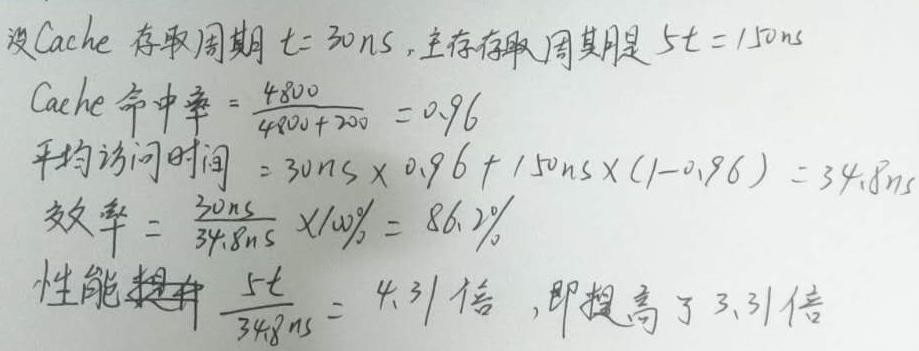 设Cache 存取周期 t=30ns,主存存取周期是 5t=150ns
Cache 命中率 = 4800/(4800+200) = 0.96
平均访问时间 = 30ns × 0.96 + 150ns × (1-0.96) = 34.8ns
效率 = 30ns/34.8ns ×100% = 86.2%
性能 5t/34.8ns = 4.31倍,即提高了3.31倍